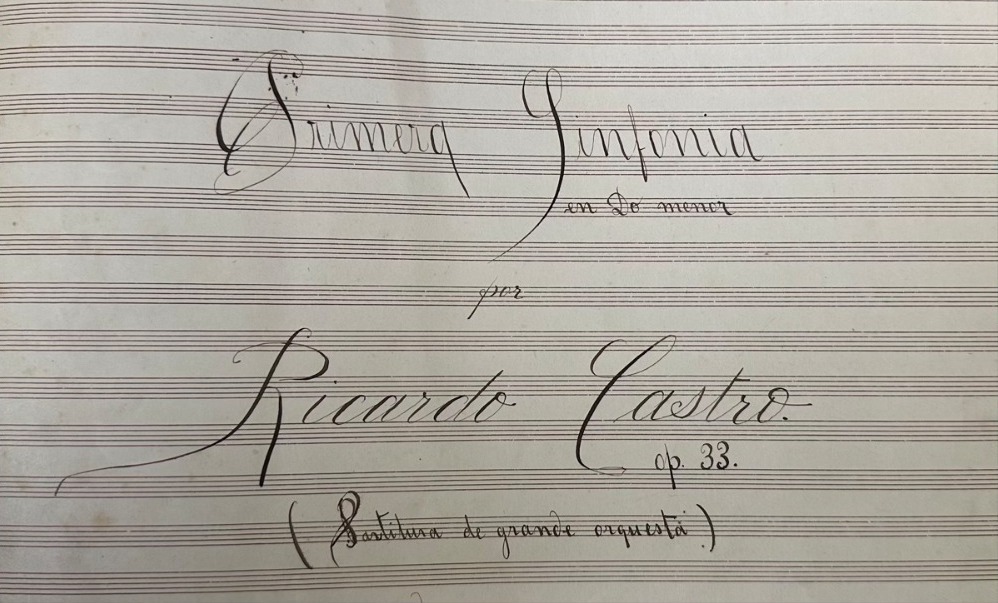 Primera Sinfonia
en Do menor
por
Ricardo Castro.
op. 33.
(Partitura de grande orquesta)